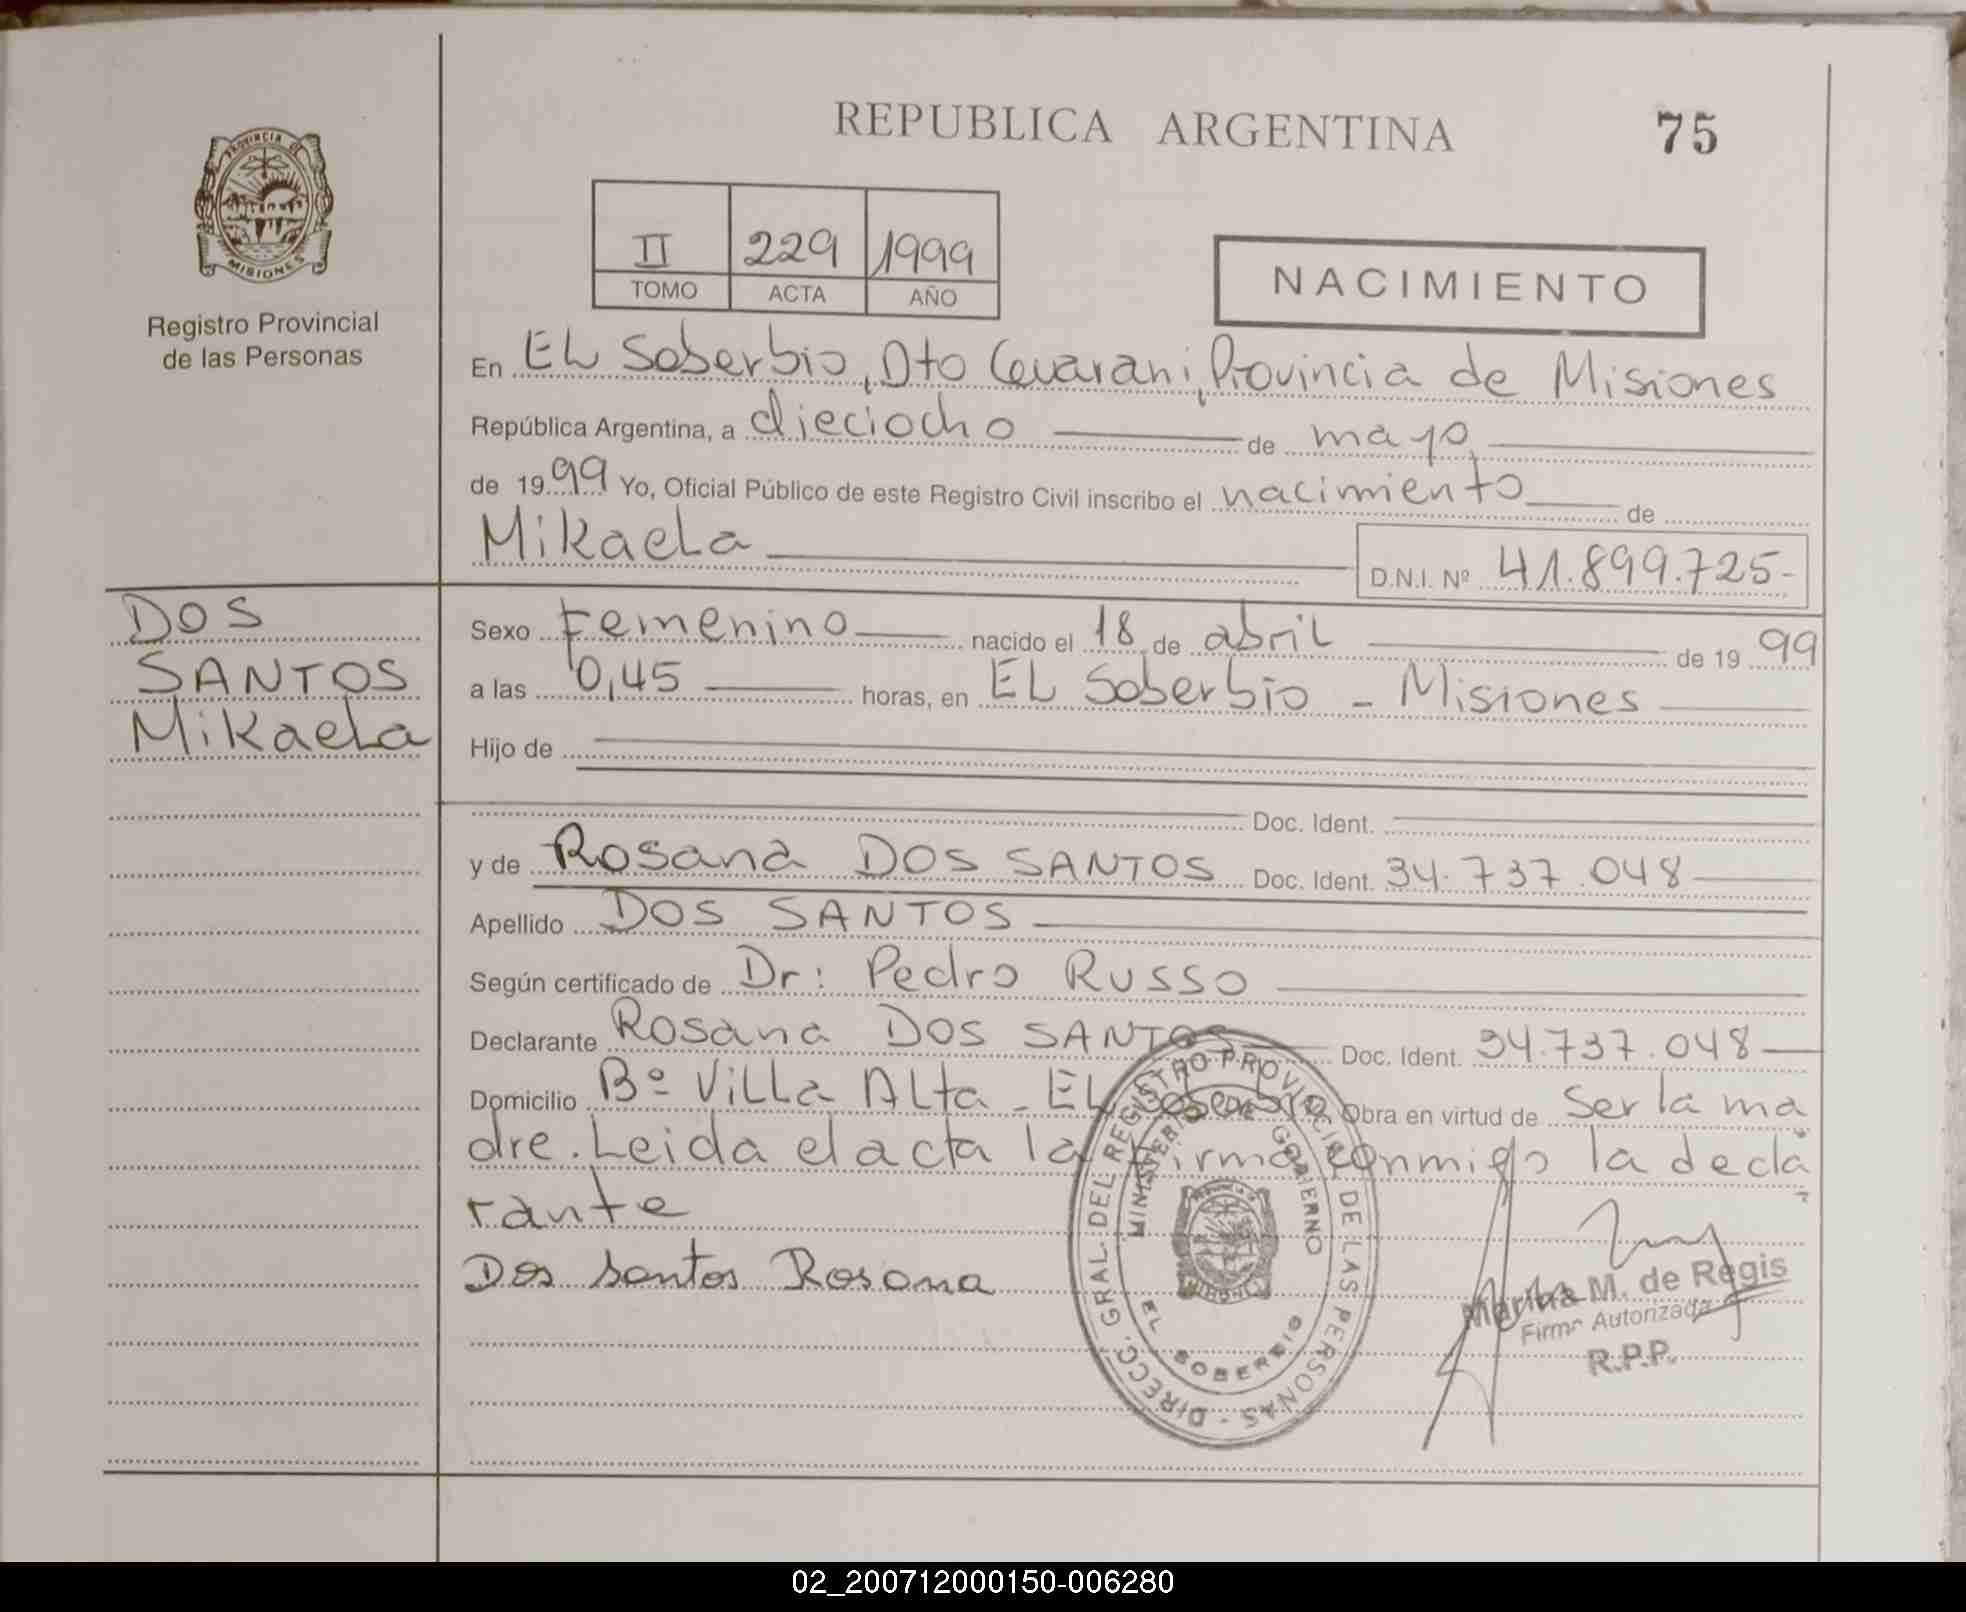 REPUBLICA ARGENTINA
75
PROVINCIA DE
MISIONES
Registro Provincial
de las Personas
II 229 1999
TOMO ACTA AÑO
NACIMIENTO
En EL Soberbio, Dto Guarani, Provincia de Misiones
República Argentina, a dieciocho de mayo
de 1999 Yo, Oficial Público de este Registro Civil inscribo el nacimiento de
Mikaela
D.N.I. Nº 41.899.725-
DOS
SANTOS
Mikaela
Sexo Femenino nacido el 18 de abril de 19 99
a las 0,45 horas, en EL Soberbio - Misiones
Hijo de
Doc. Ident.
y de Rosana DOS SANTOS Doc. Ident. 34.737.048
Apellido DOS SANTOS
Según certificado de Dr: Pedro RUSSO
Declarante Rosana DOS SANTOS Doc. Ident. 34.737.048
Domicilio Bº Villa Alta - EL Soberbio Obra en virtud de Ser la ma
dre. Leida el acta la firma conmigo la decla
rante
Dos santos Rosana
DIRECC. GRAL. DEL REGISTRO PROVINCIAL DE LAS PERSONAS -
MINISTERIO DE GOBIERNO
EL SOBERBIO
M. de Regis
Firma Autorizada
R.P.P.
02_200712000150-006280